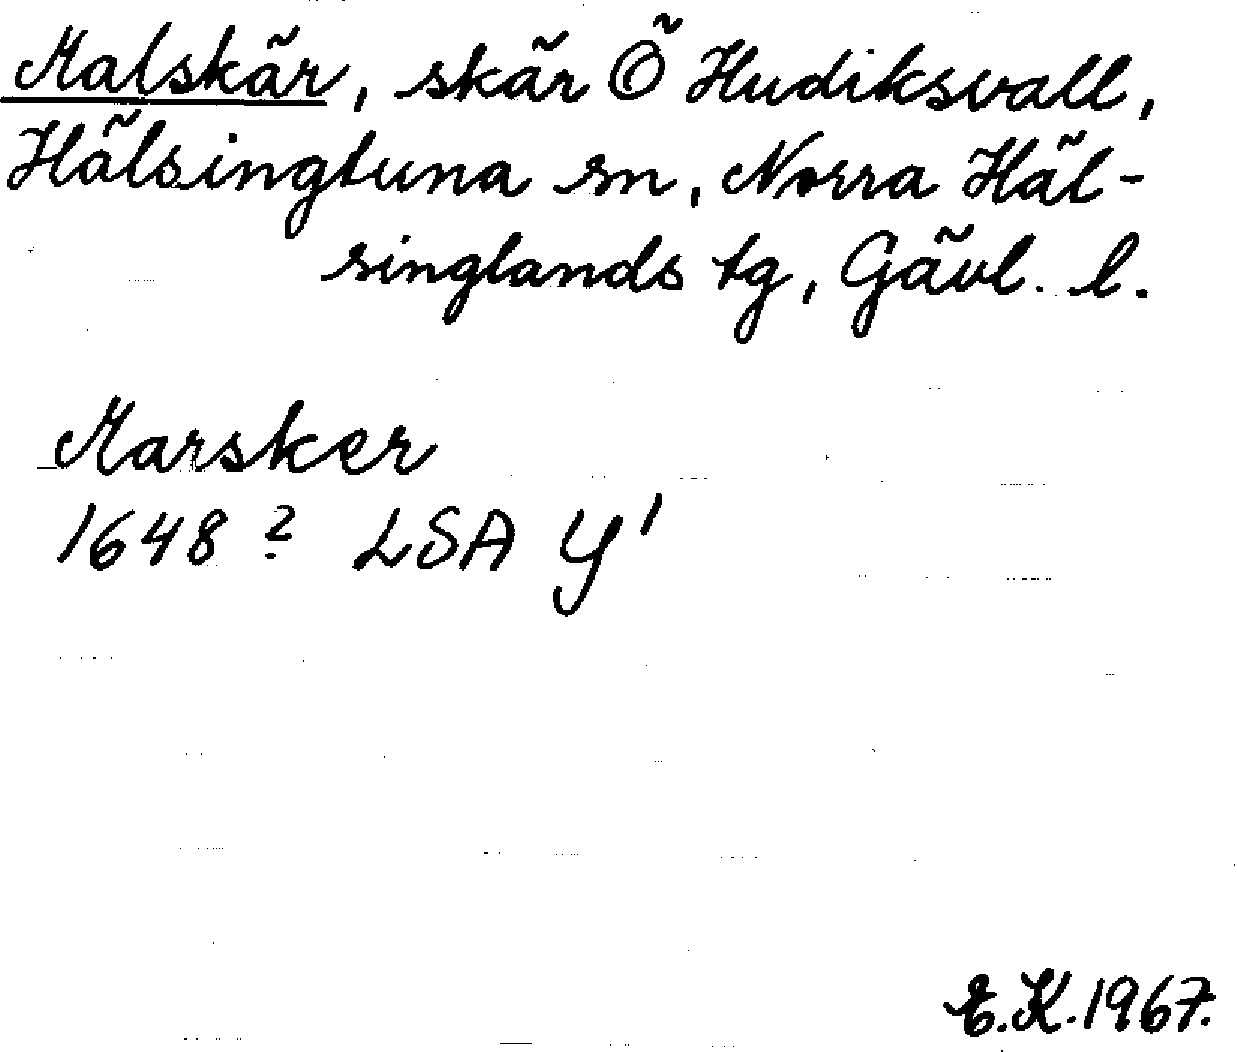 Malskär, skär Ö Hudiksvall,
Hälsingtuna sn, Norra Häl-
singlands tg, Gävl. l.
Marsker
1648? LSA Y1
E.K. 1967.